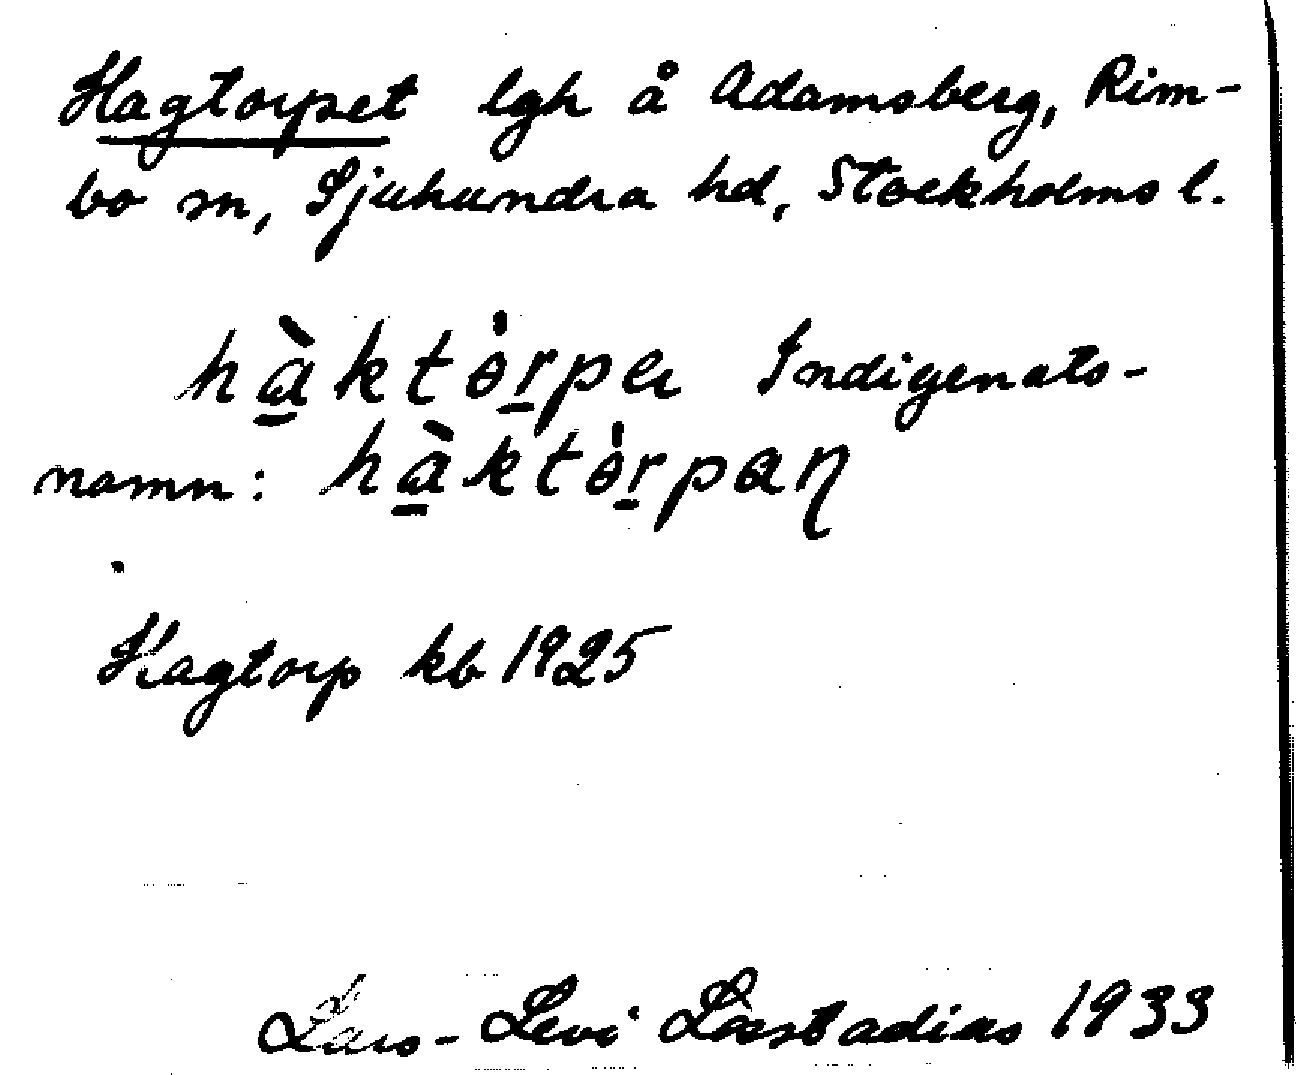 Hagtorpet lgh å Adamsberg, Rim-
bo sn, Sjuhundra hd, Stockholms l.
hàktɵ̀rpa Indigenats-
namn: hàktɵ̀rpaɳ
Hagtorp kb 1925
Lars-Levi Læstadius 1933